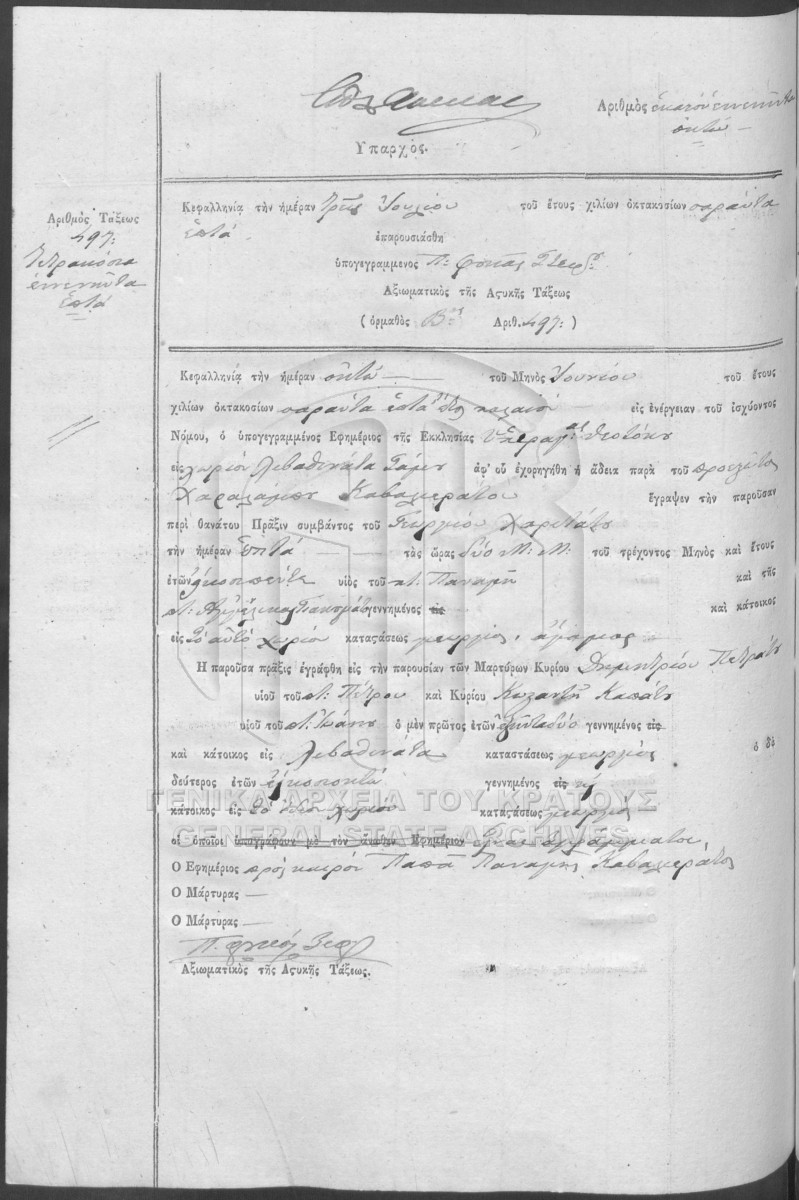 Ἀριθμὸς ἑκατὸν ἐννενῆντα
ὀκτώ
Ὑπαρχός.
Ἀριθμὸς Τάξεως
497:
Τετρακόσια
ἐννενῆντα
ἑπτά
Κεφαλληνίᾳ τὴν ἡμέραν τρεῖς Ἰουλίου τοῦ ἔτους χιλίων ὀκτακοσίων σαράντα
ἑπτά.
ἐπαρουσιάσθη
ὑπογεγραμμενος Π: Φωκᾶς
Ἀξιωματικὸς τῆς Ἀςυκῆς Τάξεως
(ὁρμαθὸς Βος Αριθ. 497:)
Κεφαλληνίᾳ τὴν ἡμέραν ὀκτώ τοῦ Μηνὸς Ἰουνίου τοῦ ἔτους
χιλίων ὀκτακοσίων σαράντα ἑπτά ἔτος παλαιόν εἰς ἐνέργειαν τοῦ ἰσχύοντος
Νόμου, ὁ ὑπογεγραμμένος Ἐφημέριος τῆς Ἐκκλησίας Ὑπεραγίας Θεοτόκου
εἰς χωρίον Λιβαθινάτα Σάμου ἀφ' οὗ ἐχορηγήθη ἡ ἄδεια παρὰ τοῦ
Χαραλάμπου Καβαλιεράτου ἔγραψεν τὴν παροῦσαν
περὶ θανάτου Πρᾶξιν συμβάντος τοῦ Γεωργίου Χαριτάτου
τὴν ἡμέραν ἑπτά τὰς ὥρας δύο Μ: Μ: τοῦ τρέχοντος Μηνὸς καὶ ἔτους
ἐτῶν εἰκοσιπέντε υἱὸς τοῦ π: Παναγῆ καὶ τῆς
π: Ἀγγέλικας γεννημένος εἰς καὶ κάτοικος
εἰς τὸ αὐτὸ χωρίον καταςάσεως γεωργός, ἄγαμος
Ἡ παροῦσα πρᾶξις ἐγράφθη εἰς τὴν παρουσίαν τῶν Μαρτύρων Κυρίου Δημητρίου Πετράτου
υἱοῦ τοῦ π: Πέτρου καὶ Κυρίου Κωζαντῆ Καπάτου
υἱοῦ τοῦ π: Ἰωάννου ὁ μὲν πρῶτος ἐτῶν γεννημένος εἰς
καὶ κάτοικος εἰς Λιβαθινάτα καταστάσεως γεωργός ὁ δὲ
δεύτερος ἐτῶν εἰκοσιοκτώ γεννημένος εἰς
κάτοικος εἰς τὸ ἴδιον χωρίον καταςάσεως γεωργός
οἱ ὁποῖοι ὑπογράφουν μὲ τὸν ἄνωθεν Ἐφημέριον εἶναι ἀγράμματοι
Ὁ Ἐφημέριος πρὸς καιρόν Παπᾶ Παναγῆς Καβαλιεράτος
Ὁ Μάρτυρας
Ὁ Μάρτυρας
Π. Φωκᾶς
Ἀξιωματικὸς τῆς Ἀςυκῆς Τάξεως.
ΓΕΝΙΚΑ ΑΡΧΕΙΑ ΤΟΥ ΚΡΑΤΟΥΣ
GENERAL STATE ARCHIVES